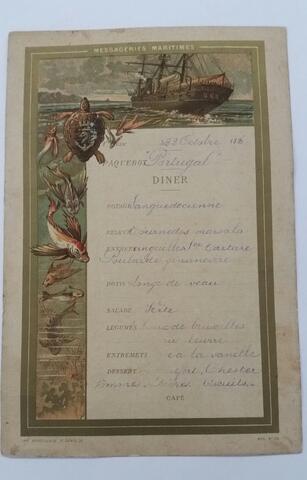 MESSAGERIES MARITIMES
23 Octobre 188
PAQUEBOT "Portugal"
DINER
POTAGE Languedocienne
RELEVÉ Tournedos marsala
ENTRÉES Anguilles Sce Tartare
Poularde
ROTIS Longe de veau
SALADE
LÉGUMES de bruxelles
au beurre
ENTREMETS à la vanille
DESSERT Chester
Pommes Poires Biscuits
CAFÉ